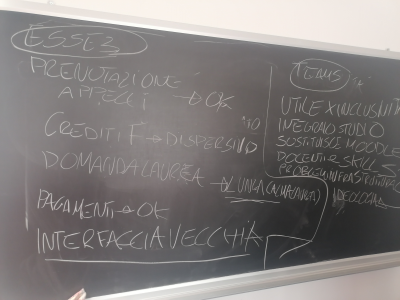 ESSE3
PRENOTAZIONE
APPELLI → OK
CREDITI F → DISPERSIVO
DOMANDA LAUREA → LUNGA (ALMALAUREA)
PAGAMENTI → OK
INTERFACCIA VECCHIA
TEAMS
UTILE X INCLUSIVITÀ
INTEGRA STUDIO
SOSTITUISCE MOODLE
DOCENTI SKILLS
PROBLEMI INFRASTRUTTURE
IDEOLOGIA